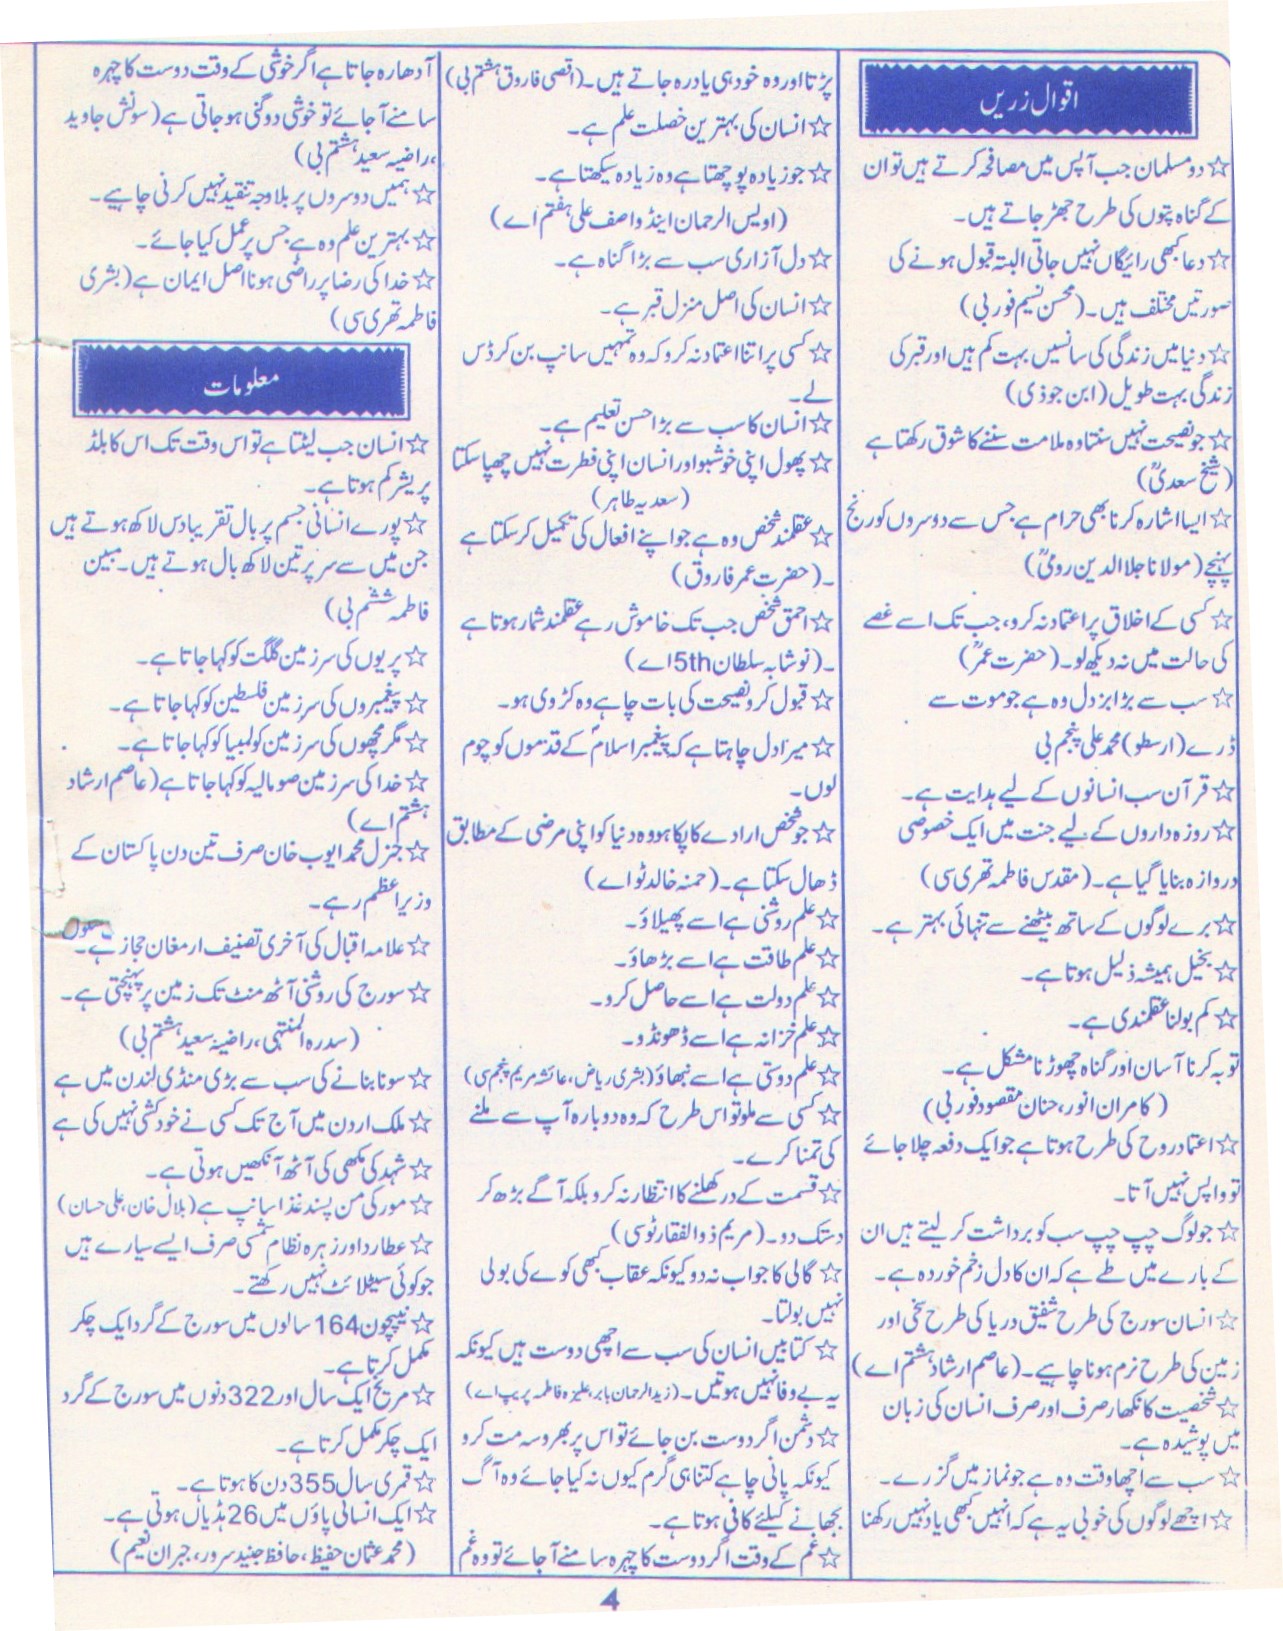 اقوال زریں
☆ دو مسلمان جب آپس میں مصافحہ کرتے ہیں تو ان
کے گناہ پتوں کی طرح جھڑ جاتے ہیں۔
☆ دعا کبھی رائیگاں نہیں جاتی البتہ قبول ہونے کی
صورتیں مختلف ہیں۔ (محسن نسیم فور بی)
☆ دنیا میں زندگی کی سانسیں بہت کم ہیں اور قبر کی
زندگی بہت طویل (ابن جوذی)
☆ جو نصیحت نہیں سنتا وہ ملامت سننے کا شوق رکھتا ہے
(شیخ سعدیؒ)
☆ ایسا اشارہ کرنا بھی حرام ہے جس سے دوسروں کو رنج
پہنچے (مولانا جلا الدین رومیؒ)
☆ کسی کے اخلاق پر اعتماد نہ کرو، جب تک اسے غصے
کی حالت میں نہ دیکھ لو۔ (حضرت عمرؓ)
☆ سب سے بڑا بزدل وہ ہے جو موت سے
ڈرے (ارسطو) محمد علی پنجم بی
☆ قرآن سب انسانوں کے لیے ہدایت ہے۔
☆ روزہ داروں کے لیے جنت میں ایک خصوصی
دروازہ بنایا گیا ہے۔ (مقدس فاطمہ تھری سی)
☆ برے لوگوں کے ساتھ بیٹھنے سے تنہائی بہتر ہے۔
☆ بخیل ہمیشہ ذلیل ہوتا ہے۔
☆ کم بولنا عقلمندی ہے۔
توبہ کرنا آسان اور گناہ چھوڑنا مشکل ہے۔
(کامران انور، حنان مقصود فور بی)
☆ اعتماد روح کی طرح ہوتا ہے جو ایک دفعہ چلا جائے
تو واپس نہیں آتا۔
☆ جو لوگ چپ چپ سب کو برداشت کر لیتے ہیں ان
کے بارے میں طے ہے کہ ان کا دل زخم خوردہ ہے۔
☆ انسان سورج کی طرح شفیق دریا کی طرح سخی اور
زمین کی طرح نرم ہونا چاہیے۔ (عاصم ارشاد ہشتم اے)
☆ شخصیت کا نکھار صرف اور صرف انسان کی زبان
میں پوشیدہ ہے۔
☆ سب سے اچھا وقت وہ ہے جو نماز میں گزرے۔
☆ اچھے لوگوں کی خوبی یہ ہے کہ انہیں کبھی یاد نہیں رکھنا
پڑتا اور وہ خود ہی یاد رہ جاتے ہیں۔ (اقصی فاروق ہشتم بی)
☆ انسان کی بہترین خصلت علم ہے۔
☆ جو زیادہ پوچھتا ہے وہ زیادہ سیکھتا ہے۔
(اویس الرحمان اینڈ واصف علی ہفتم اے)
☆ دل آزاری سب سے بڑا گناہ ہے۔
☆ انسان کی اصل منزل قبر ہے۔
☆ کسی پر اتنا اعتماد نہ کرو کہ وہ تمہیں سانپ بن کر ڈس
لے۔
☆ انسان کا سب سے بڑا حسن تعلیم ہے۔
☆ پھول اپنی خوشبو اور انسان اپنی فطرت نہیں چھپا سکتا
(سعدیہ طاہر)
☆ عقلمند شخص وہ ہے جو اپنے افعال کی تکمیل کر سکتا ہے
۔ (حضرت عمر فاروق)
☆ احمق شخص جب تک خاموش رہے عقلمند شمار ہوتا ہے
۔ (نوشابہ سلطان 5th اے)
☆ قبول کرو نصیحت کی بات چاہے وہ کڑوی ہو۔
☆ میرا دل چاہتا ہے کہ پیغمبر اسلامؐ کے قدموں کو چوم
لوں۔
☆ جو شخص ارادے کا پکا ہو وہ دنیا کو اپنی مرضی کے مطابق
ڈھال سکتا ہے۔ (حمنہ خالد ٹو اے)
☆ علم روشنی ہے اسے پھیلاؤ۔
☆ علم طاقت ہے اسے بڑھاؤ۔
☆ علم دولت ہے اسے حاصل کرو۔
☆ علم خزانہ ہے اسے ڈھونڈو۔
☆ علم دوستی ہے اسے نبھاؤ (بشری ریاض، عائشہ مریم پنجم سی)
☆ کسی سے ملو تو اس طرح کہ وہ دوبارہ آپ سے ملنے
کی تمنا کرے۔
☆ قسمت کے در کھلنے کا انتظار نہ کرو بلکہ آگے بڑھ کر
دستک دو۔ (مریم ذوالفقار ٹو سی)
☆ گالی کا جواب نہ دو کیونکہ عقاب کبھی کوے کی بولی
نہیں بولتا۔
☆ کتابیں انسان کی سب سے اچھی دوست ہیں کیونکہ
یہ بے وفا نہیں ہوتیں۔ (زید الرحمان بابر، علیزہ فاطمہ پریپ اے)
☆ دشمن اگر دوست بن جائے تو اس پر بھروسہ مت کرو
کیونکہ پانی چاہے کتنا ہی گرم کیوں نہ کیا جائے وہ آگ
بجھانے کیلئے کافی ہوتا ہے۔
☆ غم کے وقت اگر دوست کا چہرہ سامنے آ جائے تو وہ غم
آدھا رہ جاتا ہے اگر خوشی کے وقت دوست کا چہرہ
سامنے آ جائے تو خوشی دوگنی ہو جاتی ہے (سونش جاوید
،راضیہ سعید ہشتم بی)
☆ ہمیں دوسروں پر بلا وجہ تنقید نہیں کرنی چاہیے۔
☆ بہترین علم وہ ہے جس پر عمل کیا جائے۔
☆ خدا کی رضا پر راضی ہونا اصل ایمان ہے (بشری
فاطمہ تھری سی)
معلومات
☆ انسان جب لیٹتا ہے تو اس وقت تک اس کا بلڈ
پریشر کم ہوتا ہے۔
☆ پورے انسانی جسم پر بال تقریبا دس لاکھ ہوتے ہیں
جن میں سے سر پر تین لاکھ بال ہوتے ہیں۔ مبین
فاطمہ ششم بی)
☆ پریوں کی سرزمین گلگت کو کہا جاتا ہے۔
☆ پیغمبروں کی سرزمین فلسطین کو کہا جاتا ہے۔
☆ مگرمچھوں کی سرزمین کولمبیا کو کہا جاتا ہے۔
☆ خدا کی سرزمین صومالیہ کو کہا جاتا ہے (عاصم ارشاد
ہشتم اے)
☆ جنرل محمد ایوب خان صرف تین دن پاکستان کے
وزیر اعظم رہے۔
☆ علامہ اقبال کی آخری تصنیف ارمغان حجاز ہے۔
☆ سورج کی روشنی آٹھ منٹ تک زمین پر پہنچتی ہے۔
(سدرہ المنتہی، راضیہ سعید ہشتم بی)
☆ سونا بنانے کی سب سے بڑی منڈی لندن میں ہے
☆ ملک اردن میں آج تک کسی نے خودکشی نہیں کی ہے
☆ شہد کی مکھی کی آٹھ آنکھیں ہوتی ہے۔
☆ مور کی من پسند غذا سانپ ہے (بلال خان، علی حسان)
☆ عطارد اور زہرہ نظام شمسی صرف ایسے سیارے ہیں
جو کوئی سیٹلائٹ نہیں رکھتے۔
☆ نیپچون 164 سالوں میں سورج کے گرد ایک چکر
مکمل کرتا ہے۔
☆ مریخ ایک سال اور 322 دنوں میں سورج کے گرد
ایک چکر مکمل کرتا ہے۔
☆ قمری سال 355 دن کا ہوتا ہے۔
☆ ایک انسانی پاؤں میں 26 ہڈیاں ہوتی ہے۔
(محمد عثمان حفیظ، حافظ جنید سرور، جبران نعیم)
4